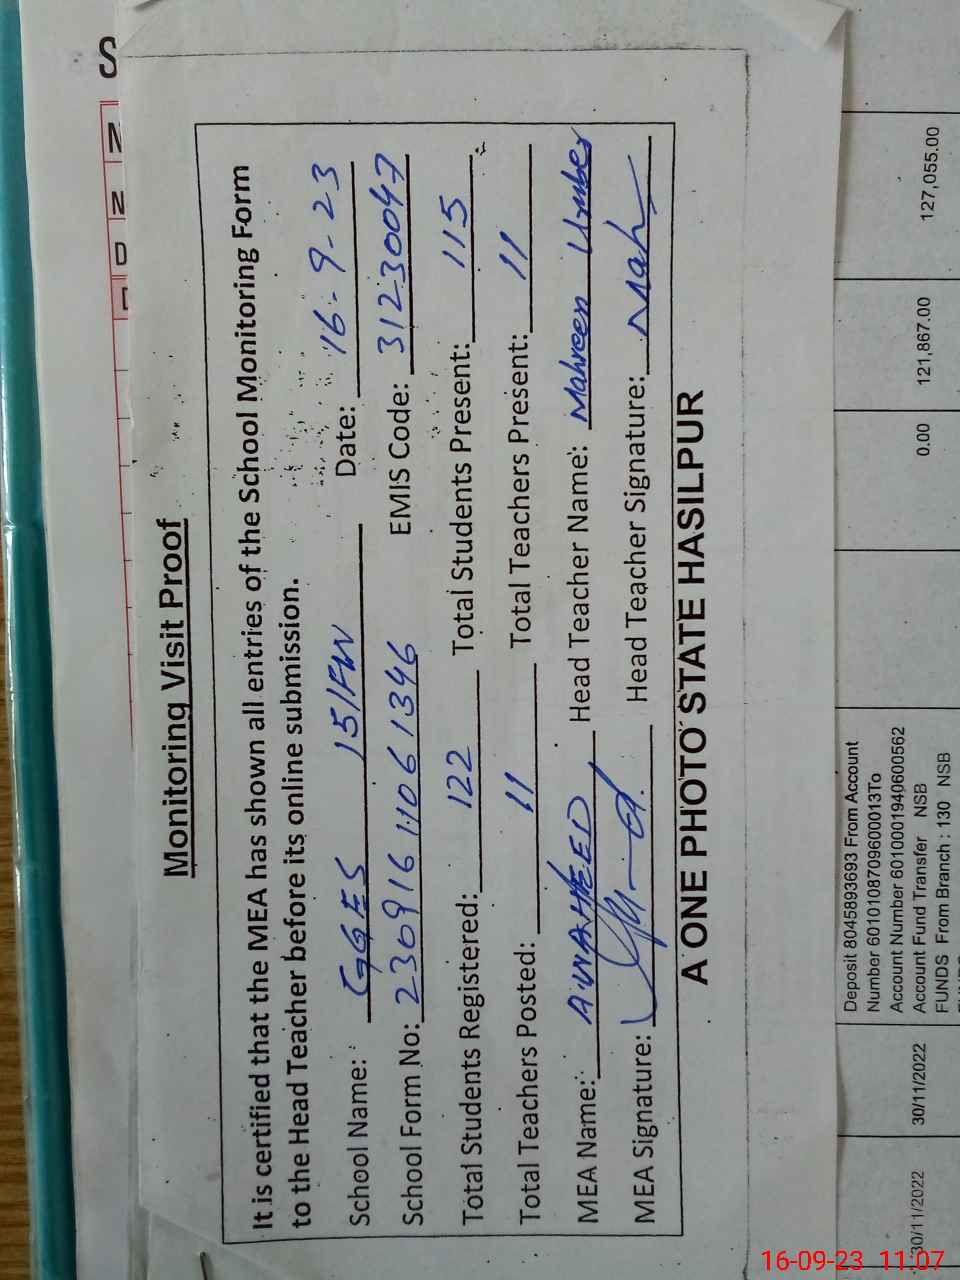 Monitoring Visit Proof
It is certified that the MEA has shown all entries of the School Monitoring Form
to the Head Teacher before its online submission.
School Name: GGES 151FW Date: 16-9-23
School Form No: 23091611061346 EMIS Code: 31230047
Total Students Registered: 122 Total Students Present: 115
Total Teachers Posted: 11 Total Teachers Present: 11
MEA Name: Head Teacher Name: Mahreen Umber
MEA Signature: Head Teacher Signature: Mah
A ONE PHOTO STATE HASILPUR
30/11/2022 30/11/2022 Deposit 8045893693 From Account 0.00 121,867.00 127,055.00
Number 6010108709600013To
Account Number 6010001940600562
Account Fund Transfer NSB
FUNDS From Branch : 130 NSB
16-09-23 11:07